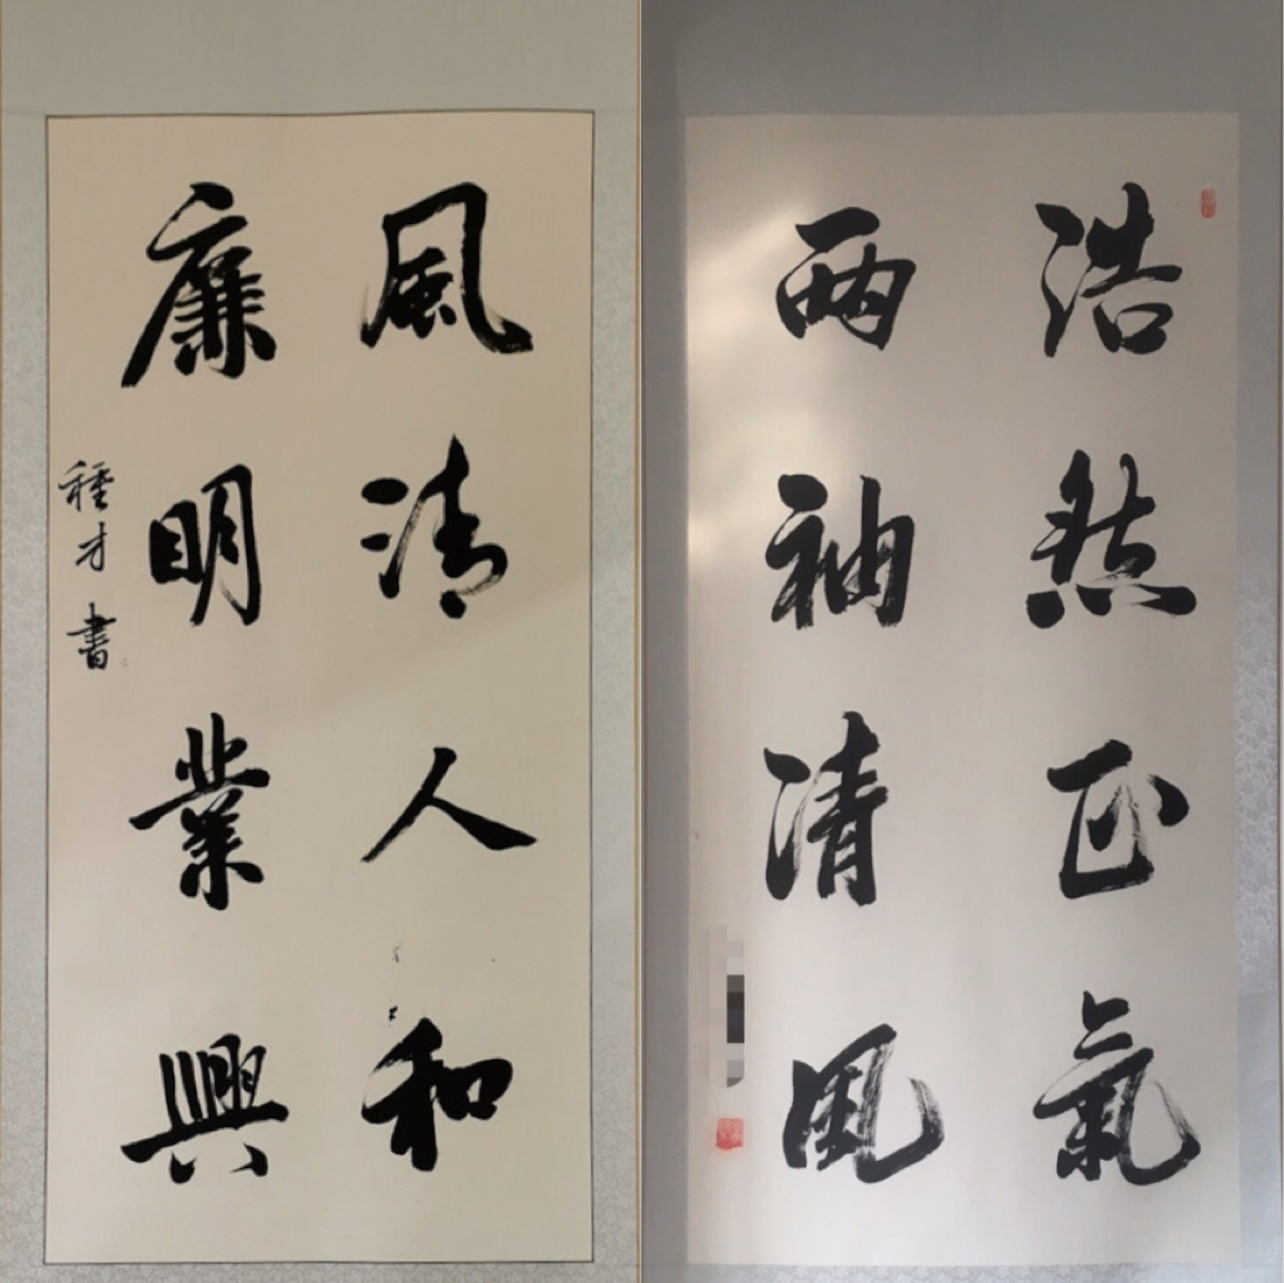 風清人和
廉明業興
種才書
浩然正氣
兩袖清風